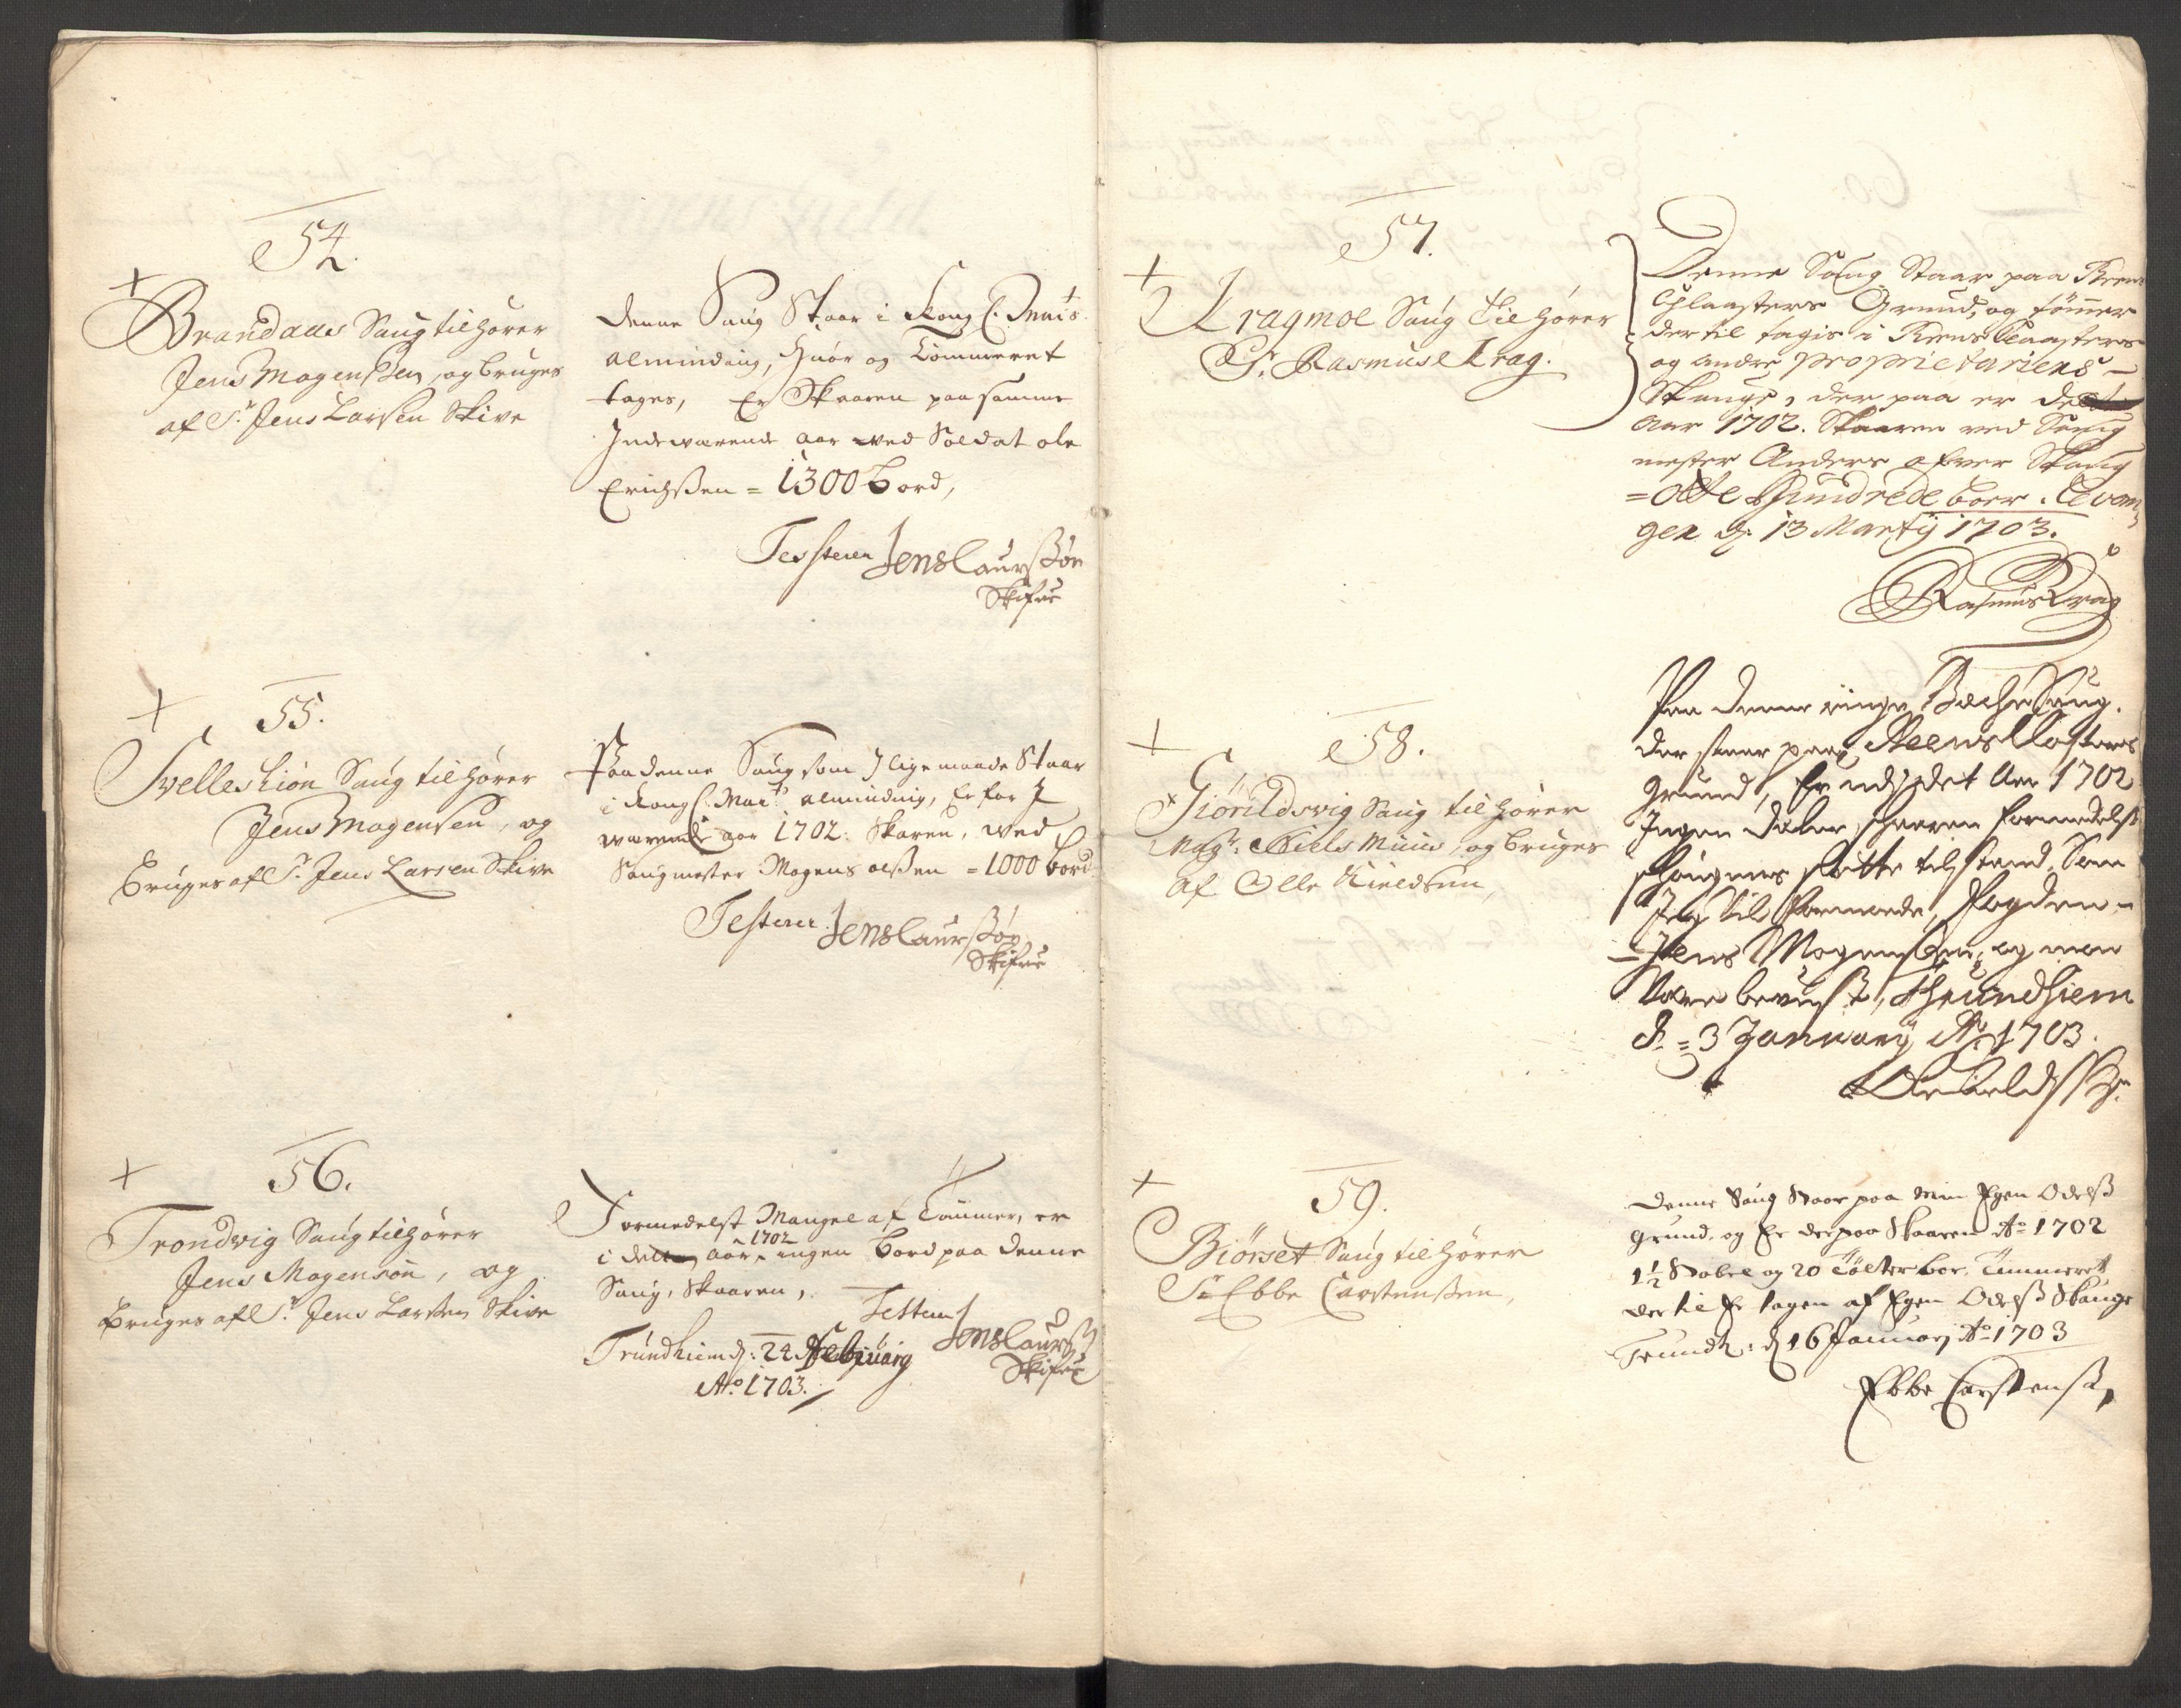 54.
+
Brandaas Saug tilhører
Jens Mogensen, og bruges
af Sr. Jens Larsen Skive
denne Saug Staar i Kong. Mais.
alminding, huor og Tømmeret
tages, Er Skaaren paa samme
Indeværende aar ved Soldat ole
Erichssen = 1300 bord,
Testerer Jens Laurssøn
Skifue
+
55.
Saug tilhører
Jens Mogensen, og
bruges af Sr. Jens Larsen Skive
Paa denne Saug som I lige maade Staar
i Kong. Maits. alminding, Er for I
værende aar 1702. Skaaren, ved
Saugmester Mogens olssen = 1000 bord
Testerer Jens Laurssøn
Skifue
+
56.
Trondvig Saug tilhører
Jens Mogensøn, og
bruges af Sr. Jens Larssen Skive
Formedelst Mangel af Tømmer, er
1702
i dette aar ingen bord paa denne
Saug, Skaaren,
Testerer Jens Laurss
Skifue
Trundhiem d: 24 February
Ao. 1703.
57.
+
Kragmoe Saug tilhører
Sr. Rasmus Krag.
Denne Saug Staar paa Reens
Closters Grund, og tømmer
der til tagis i Reens Closters
og andre proprietariens
Skauge, der paa er dette
Aar 1702. Skaaren ved Saug
mester Anders
= Otte Hundrede boer. Levan
ger d. 13 Marty 1703.
Rasmus Krag
+
58.
Giørildsvig Saug tilhører
Magr. Niels Muus, og bruges
af Olle Kieldsen,
Paa denne ringe Bæche Saug.
der staar paa Reens Closters
grund, Er udj det Aar 1702
Ingen deeler schaaren formedelst
schougens slette tilstand, Som
Jeg vil formode, fogden
Jens Mogenssen, og
være bevust, Thrundhiem
d. = 3 January Ao 1703.
Ole Kieldss
+
59.
Biørset Saug tilhører
Sr Ebbe Carstenssen,
denne Saug Staar paa min Egen Odelss
grund, og Er derpaa Skaaren Ao 1702
1½ Stabel og 20 Tølter bor, Tømmeret
der til Er tagen af Egen Odelss Skauge
Trundh: d 16 January Ao 1703
Ebbe Carstenss